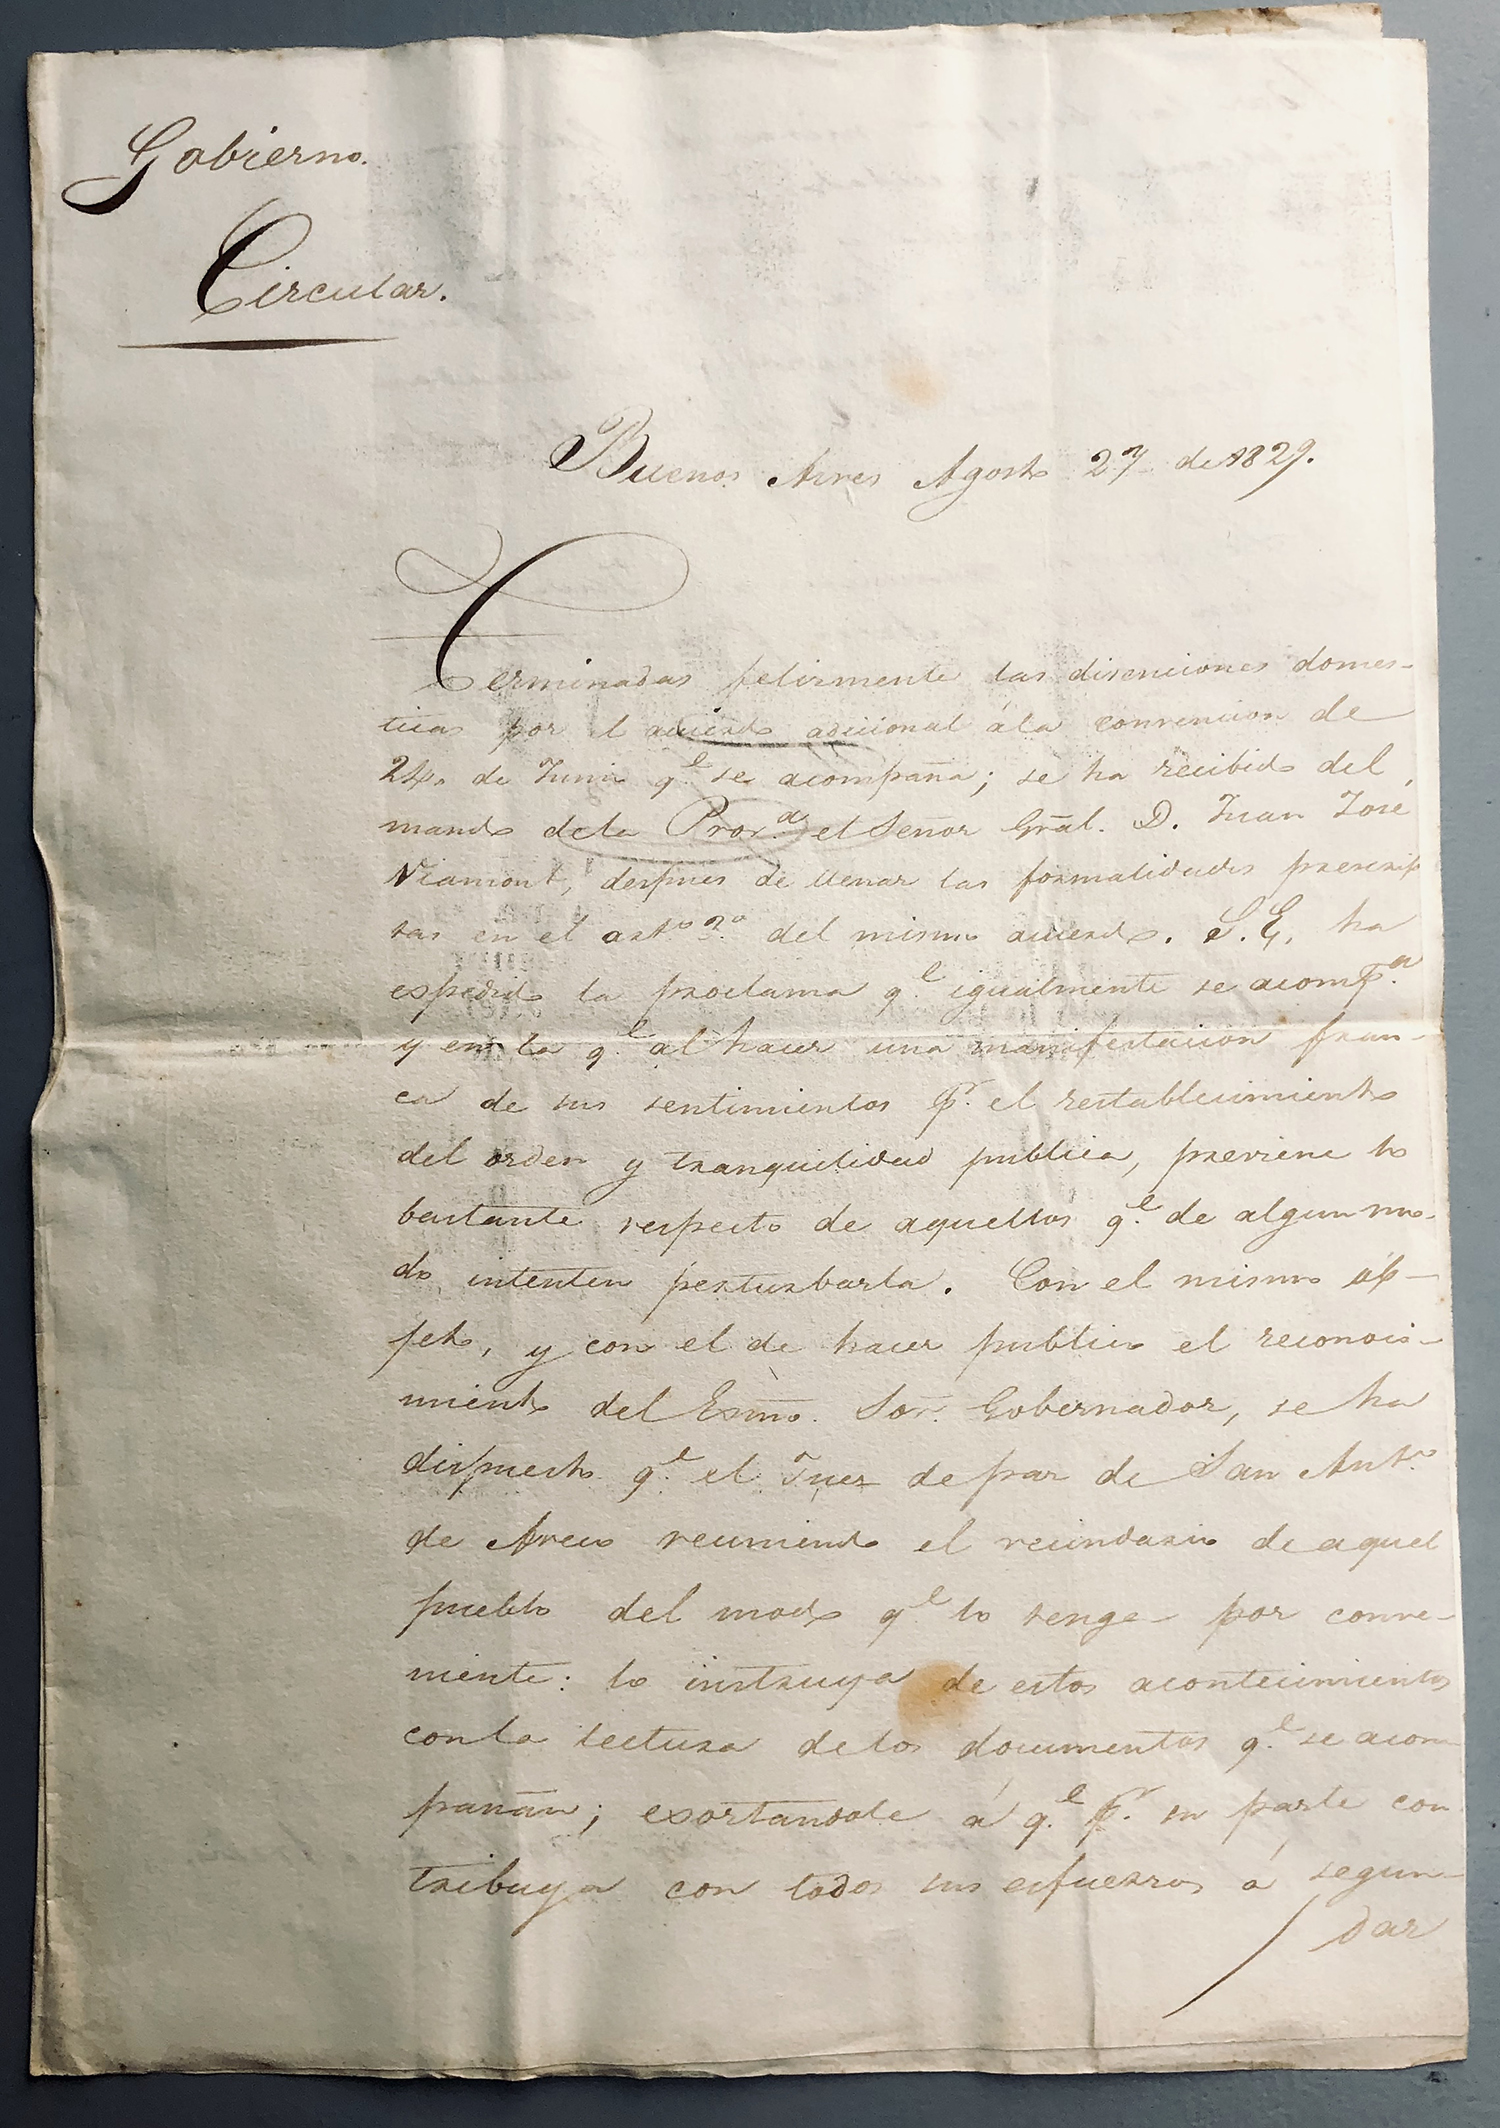 Gobierno.
Circular.
Buenos Aires Agosto 27 de 1829.
Terminadas felizmente las disenciones domes-
ticas por el acuerdo adicional á la convencion de
24. de Junio q.e se acompaña; se ha recibido del
mando dela Prov.a el Señor Gral. D. Juan José
Viamont, despues de llenar las formalidades prescrip
tas en el arto 2o. del mismo acuerdo. S.E. ha
espedido la proclama q.e igualmente se acomp.a
y en la q.e al hacer una manifestacion fran-
ca de sus sentimientos p.r el restablecimiento
del orden y tranquilidad publica, previene lo
bastante respecto de aquellos q.e de algun mo-
do intenten perturbarla. Con el mismo ob-
jeto, y con el de hacer publico el reconoci-
miento del Exmo. Sor. Gobernador, se ha
dispuesto q.e el Juez de paz de San Anto.
de Areco reuniendo el vecindario de aquel
pueblo del modo q.e lo tenga por conve-
niente: lo instruya de estos acontecimientos
con la lectura delos documentos q.e se acom
pañan; exortandole á q.e p.r su parte con
tribuya con todos sus esfuerzos á segun-
/ dar